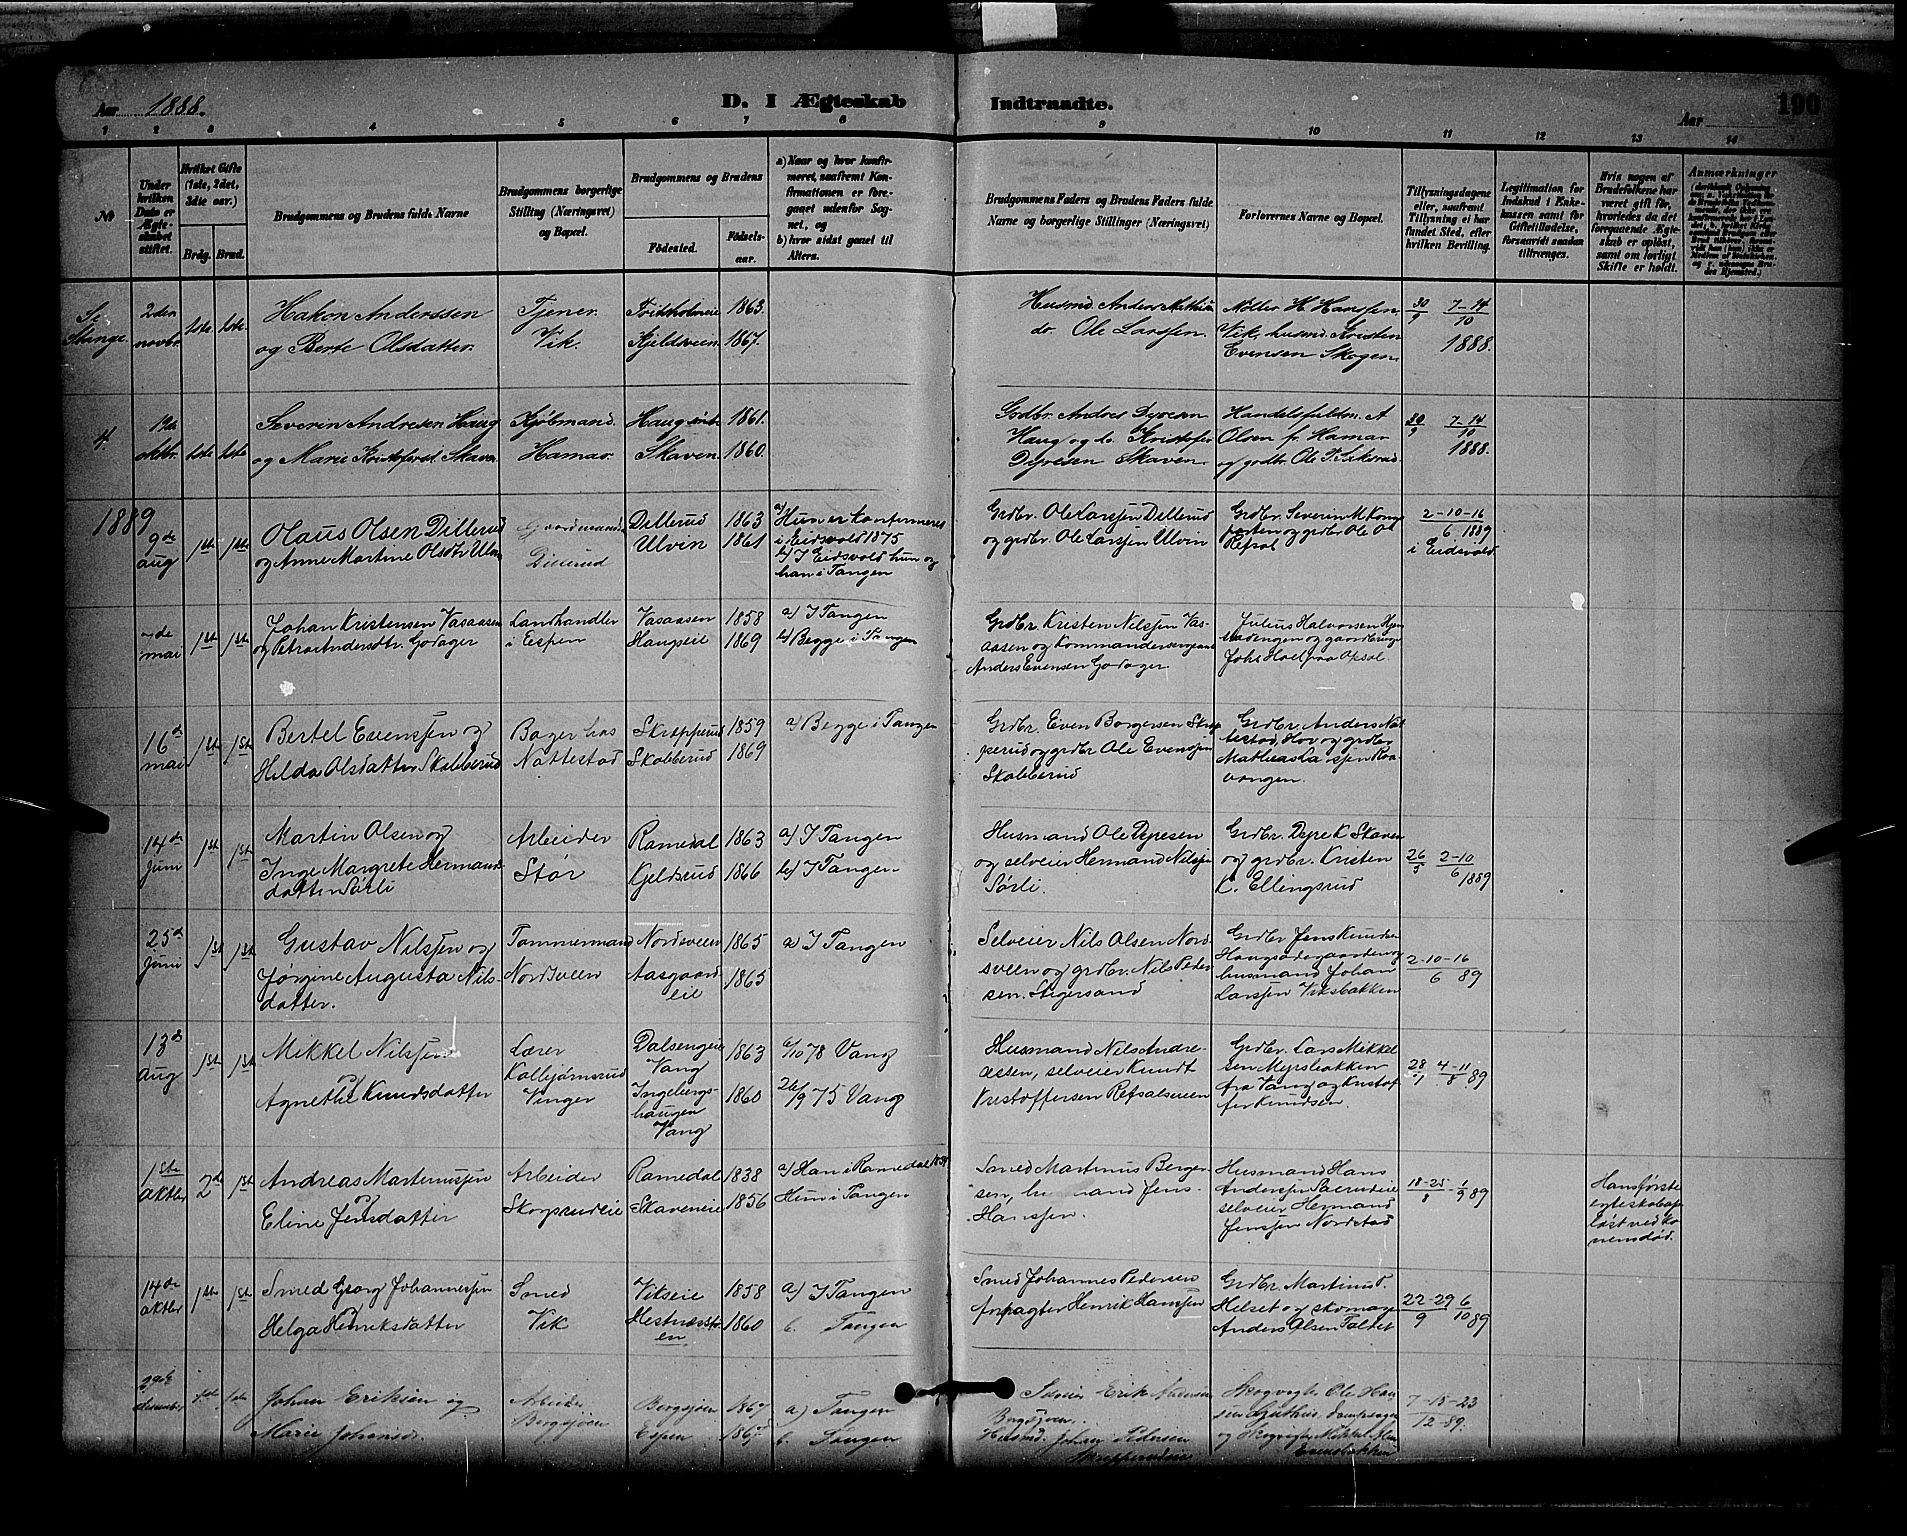 Aar 1888.
D. I Ægteskab Indtraadte.
Aar
190
1 2 3 4 5 6 7 8 9 10 11 12 13 14
№
Under hvilken Dato er Ægteskabet stiftet.
Hvilket Gifte (1ste, 2det, 3die osv.)
Brdg. Brud.
Brudgommens og Brudens fulde Navne
Brudgommens borgerlige Stilling (Næringsvei) og Bopæl.
Brudgommens og Brudens
Fødested.
Fødsels-aar.
a) Naar og hvor konfirmeret, saafremt Konfirmationen er foregaaet udenfor Sognet, og
b) hvor sidst gaaet til Alters.
Brudgommens Faders og Brudens Faders fulde Navne og borgerlige Stillinger (Næringsvei)
Forlovernes Navne og Bopæl.
Tillysningsdagene eller, saafremt Tillysning ei har fundet Sted, efter hvilken Bevilling.
Legitimation for Indskud i Enkekassen samt for Giftetilladelse, forsaavidt saadan tiltrænges.
Hvis nogen af Brudefolkene har været gift før, hvorledes da det foregaaende Ægteskab er opløst, samt om lovligt Skifte er holdt.
Anmærkninger
Se Stange
2den novbr.
1ste 1ste
Hakon Anderssen
og Berte Olsdatter.
Tjener
Vik.
Kjeldsveen
1863.
1867.
Husmd Anders
do. Ole Larssen.
Møller H. Hanssen
Vik, husmd. Kristen
Evensen Skogen
30/9 7-14/10
1888.
4.
19de oktbr.
1ste 1ste
Severin Andresen Haug
og Marie Kristofersd. Skaven
Kjøbmand.
Hamar.
Haug
Skaven
1861.
1860.
Grdbr. Andres Dyresen
Haug og do. Kristofer
Dyresen Skaven.
Handelsfuldm. A
Olsen fr. Hamar
og grdbr. Ole
30/9 7-14/10
1888.
1889
9de aug
1ste 1ste
Olaus Olsen Dillerud
og Anne Martine Olsdtr Ulvin
Gaardmand
Dillerud
Dillerud
Ulvin
1863
1861
a) Hun er konfirmeret
i Eidsvold 1875
b) I Eidsvold hun og
han i Tangen
Grdbr. Ole Larssen Dillerud
og grdbr. Ole Larssen Ulvin
Grdbr. Severin M. Kongs
parten og grdbr Ole Ol
Refsal
2-10-16/6 1889
i Eidsvold
7de mai
1ste 1ste
Johan Kristensen Vasaasen
og Petra Andersdtr. Godager
Landhandler
i Espen
Vasaasen
Haugseie
1858
1869
a) I Tangen
b) Begge i Tangen
Grdbr Kristen Nilssen Vas-
aasen og Kommandersergeant
Anders Evensen Godager.
Julius Halvorsen
engen og gaardbruger
Johs Hoel paa Opsal.
16d mai
1ste 1ste
Bertel Evenssen og
Hilda Olsdatter Skabberud
Bager hos
Nattestad
Skrepperud
Skabberud
1859
1869
a) Begge i Tangen
Grdbr. Even Borgersen Skrep
perud og grdbr Ole Evenssen
Skabberud
Grdbr. Anders Nat
testad, Hov og grdbr
Mathias Larssen Raa
vangen.
14de Juni
1ste 1ste
Martin Olsen og
Inge Margrete Hermans
datter Sørli
Arbeider
Stør
Ramedal
Kjeldsrud
1863
1866
a) I Tangen
b) I Tangen
Husmand Ole Dyresen
og selveier Hermand Nilssen
Sørli.
Grdbr. Dyre K Skaven
og grdbr. Kristen
K. Ellingsrud
26/5 2-10/6 1889
25de Juni
1ste 1ste
Gustav Nilssen og
Jørgine Augusta Nils-
datter.
Tømmermand
Nordsveen
Nordsveen
Aasgaard
eie
1865
1865
a) I Tangen
Selveier Nils Olsen Nord-
sveen og grdbr. Nils Peder-
sen. Stigersand
Grdbr Jens Knudsen
Haugsødegaarden og
husmand Johan
Larssen Viksbakken
2-10-16/6 89
13de Aug
1ste 1ste
Mikkel Nilssen
og
Agnethe Knudsdatter
Lærer
Kolbjørnsrud
Vinger
Dalsengeie
Vang
Ingebergs-
haugen
Vang
1863
1860
6/10 78 Vang
26/9 75 Vang
Husmand Nils Andre-
assen, selveier Knudt
Kristoffersen Refsalsveen
Grdbr. Lars Mikkel
sen Myrsbakken
fra Vang og Kristof
fer Knudsen.
28/7 4-11/8 89
1ste Oktbr
2de 1ste
Andreas Martinussen
og
Eline Jensdatter
Arbeider
Skogsrudeie
Ramedal
Skaveneie
1838
1856
a) Han i Romedal
Hun i Tangen
Smed Martinus Berger-
sen, husmand Jens
Hanssen.
Husmand Hans
Anderssen
selveier Hermand
Jenssen Nordstad
18-25/8 - 1/9 89
Hans første
egteskab op
løst ved ko
nens død.
14de Oktbr
1ste 1ste
Smed Georg Johannessen
og
Helga Henriksdatter
Smed
Vik
Vikseie
Hestnesstu
en
1858
1860
a) I Tangen
b. Tangen
Smed Johannes Pedersen
forpagter Henrik Hanssen
Grdbr. Martinus P.
Helset og skomager
Anders Olsen Taltet
22-29/9 6/10 89
29de december
1ste 1ste
Johan Eriksen og
Marie Johansd.
Arbeider
Bergsjøen
Bergsjøen
Espen
1867
1865
a) Tangen
b. Tangen
Selveier Erik
Bergsjøen.
Husmd. Johan Pedersen
Skrepperudeie
Skogvogter Ole Han
sen
og Skogvogter Mikkel
Evensbakken
7-15-23/12-89.